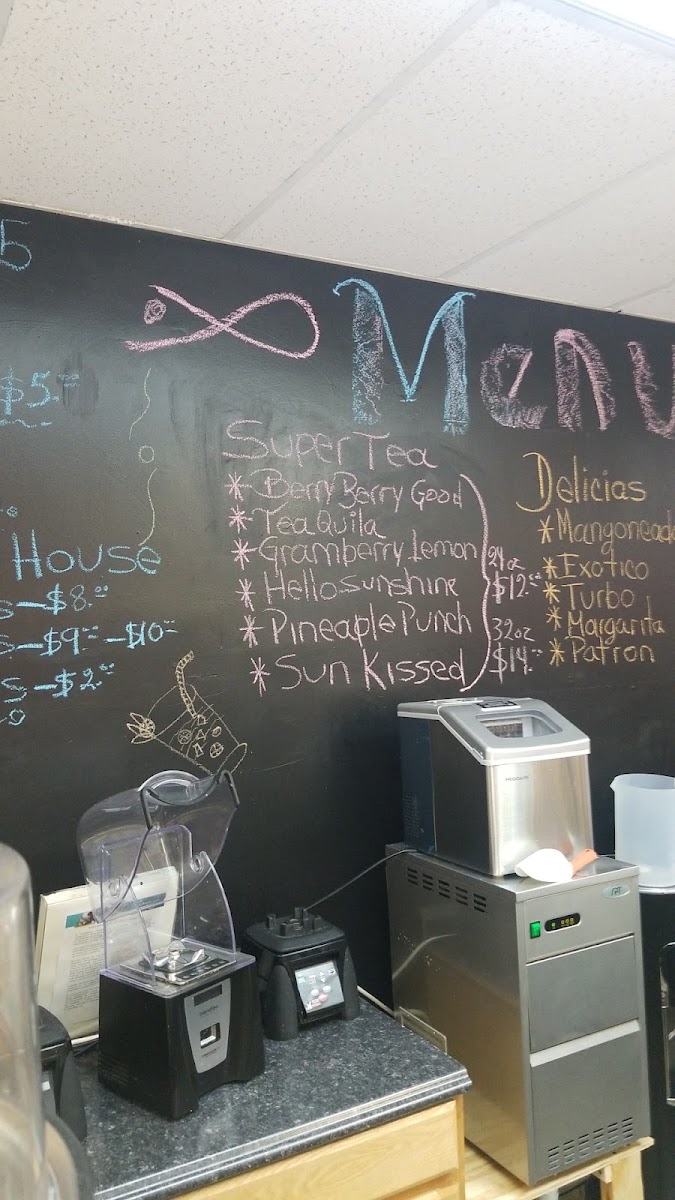 5
$5.00
House
s-$8.00
s-$9.00-$10.00
s-$2.00
Menu
SuperTea
*Berry Berry Good
*TeaQuila
*Gramberry Lemon
*Hello Sunshine
*Pineaple Punch
*Sun Kissed
24oz
$12.00
32oz
$14.00
Delicias
*Mangoneada
*Exotico
*Turbo
*Margarita
*Patron
FRIGIDAIRE